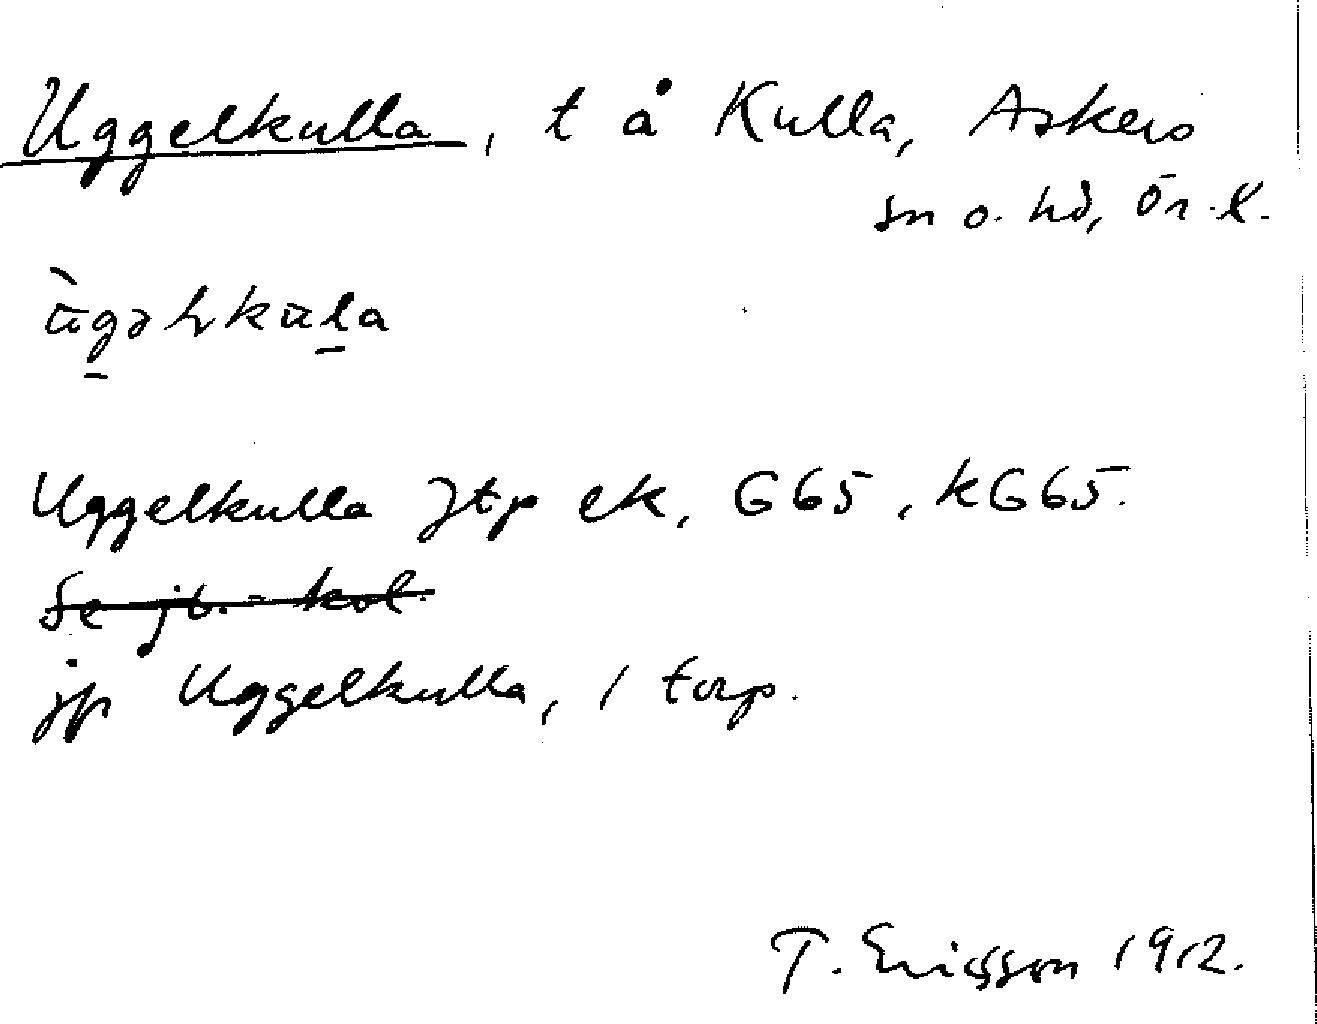 Uggelkulla, t å Kulla, Askers
sn o. hd, Ör. l.
ùgəlkula
Uggelkulla Jtp ek, G65, kG65.
Se jb. - kol.
jp Uggelkulla, 1 torp.
T. Ericsson 1912.